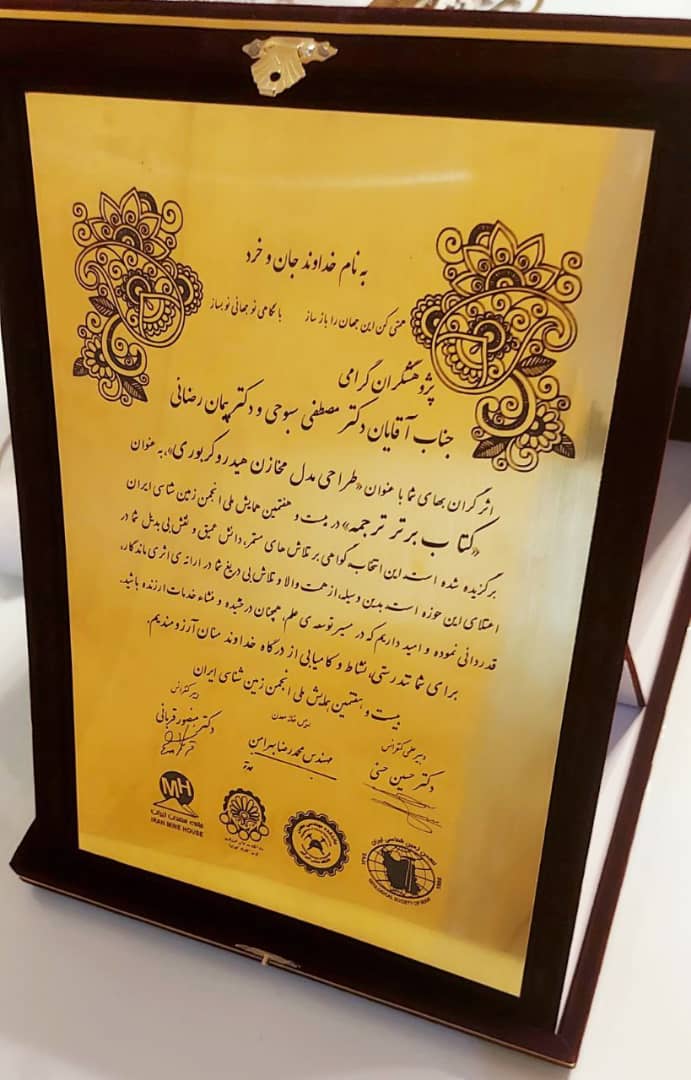 به نام خداوند جان و خرد
همتی کن این جهان را باز ساز با نگاهی نو جهانی نو بساز
پژوهشگران گرامی
جناب آقایان دکتر مصطفی سبوحی و دکتر پیمان رضائی
اثر گران بهای شما با عنوان «طراحی مدل مخازن هیدروکربوری»، به عنوان
«کتاب برتر ترجمه» در بیست و هفتمین همایش ملی انجمن زمین شناسی ایران
برگزیده شده است. این انتخاب گواهی بر تلاش های مستمر، دانش عمیق و نقش بی بدیل شما در
اعتلای این حوزه است. بدین وسیله، از همت والا و تلاش بی دریغ شما در ارائه ی اثری ماندگار،
قدردانی نموده و امید داریم که در مسیر توسعه ی علم، همچنان درخشیده و منشاء خدمات ارزنده باشید.
برای شما تندرستی، نشاط و کامیابی از درگاه خداوند منان آرزومندیم.
بیست و هفتمین همایش ملی انجمن زمین شناسی ایران
دبیر علمی کنفرانس
دکتر حسین حسنی
رئیس خانه معدن
مهندس محمدرضا بهرامن
دبیر کنفرانس
دکتر منصور قربانی
MH
خانه معدن ایران
IRAN MINE HOUSE
انجمن زمین شناسی ایران
GEOLOGICAL SOCIETY OF IRAN